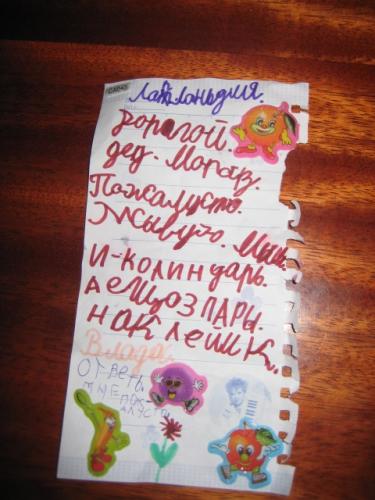 Лаплоньдия.
Дорогой.
дед. Мороз.
Пожалусто.
Живую. Мыш.
И-колиндарь.
А ещоз пары.
наклейик.
Влада.
ответь
мне пож
алуста